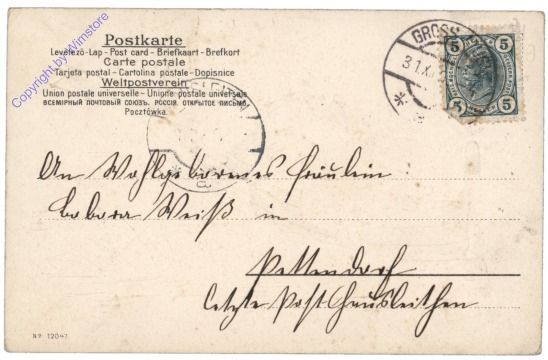 Postkarte
Levelező-Lap - Post card - Briefkaart - Brefkort
Carte postale
Tarjeta postal - Cartolina postale - Dopisnice
Weltpostverein
Union postale universelle - Unione postale universale
ВСЕМІРНЫЙ ПОЧТОВЫЙ СОЮЗЪ. РОССІЯ. ОТКРЫТОЕ ПИСЬМО.
Pocztówka.
Copyright by Wimstore
GROSS
31.XII
5 5
5 5
An Wohlgeborenes Fräulein
Weiß in
Pettendorf
Letzte Post Hausleithen
No 12047